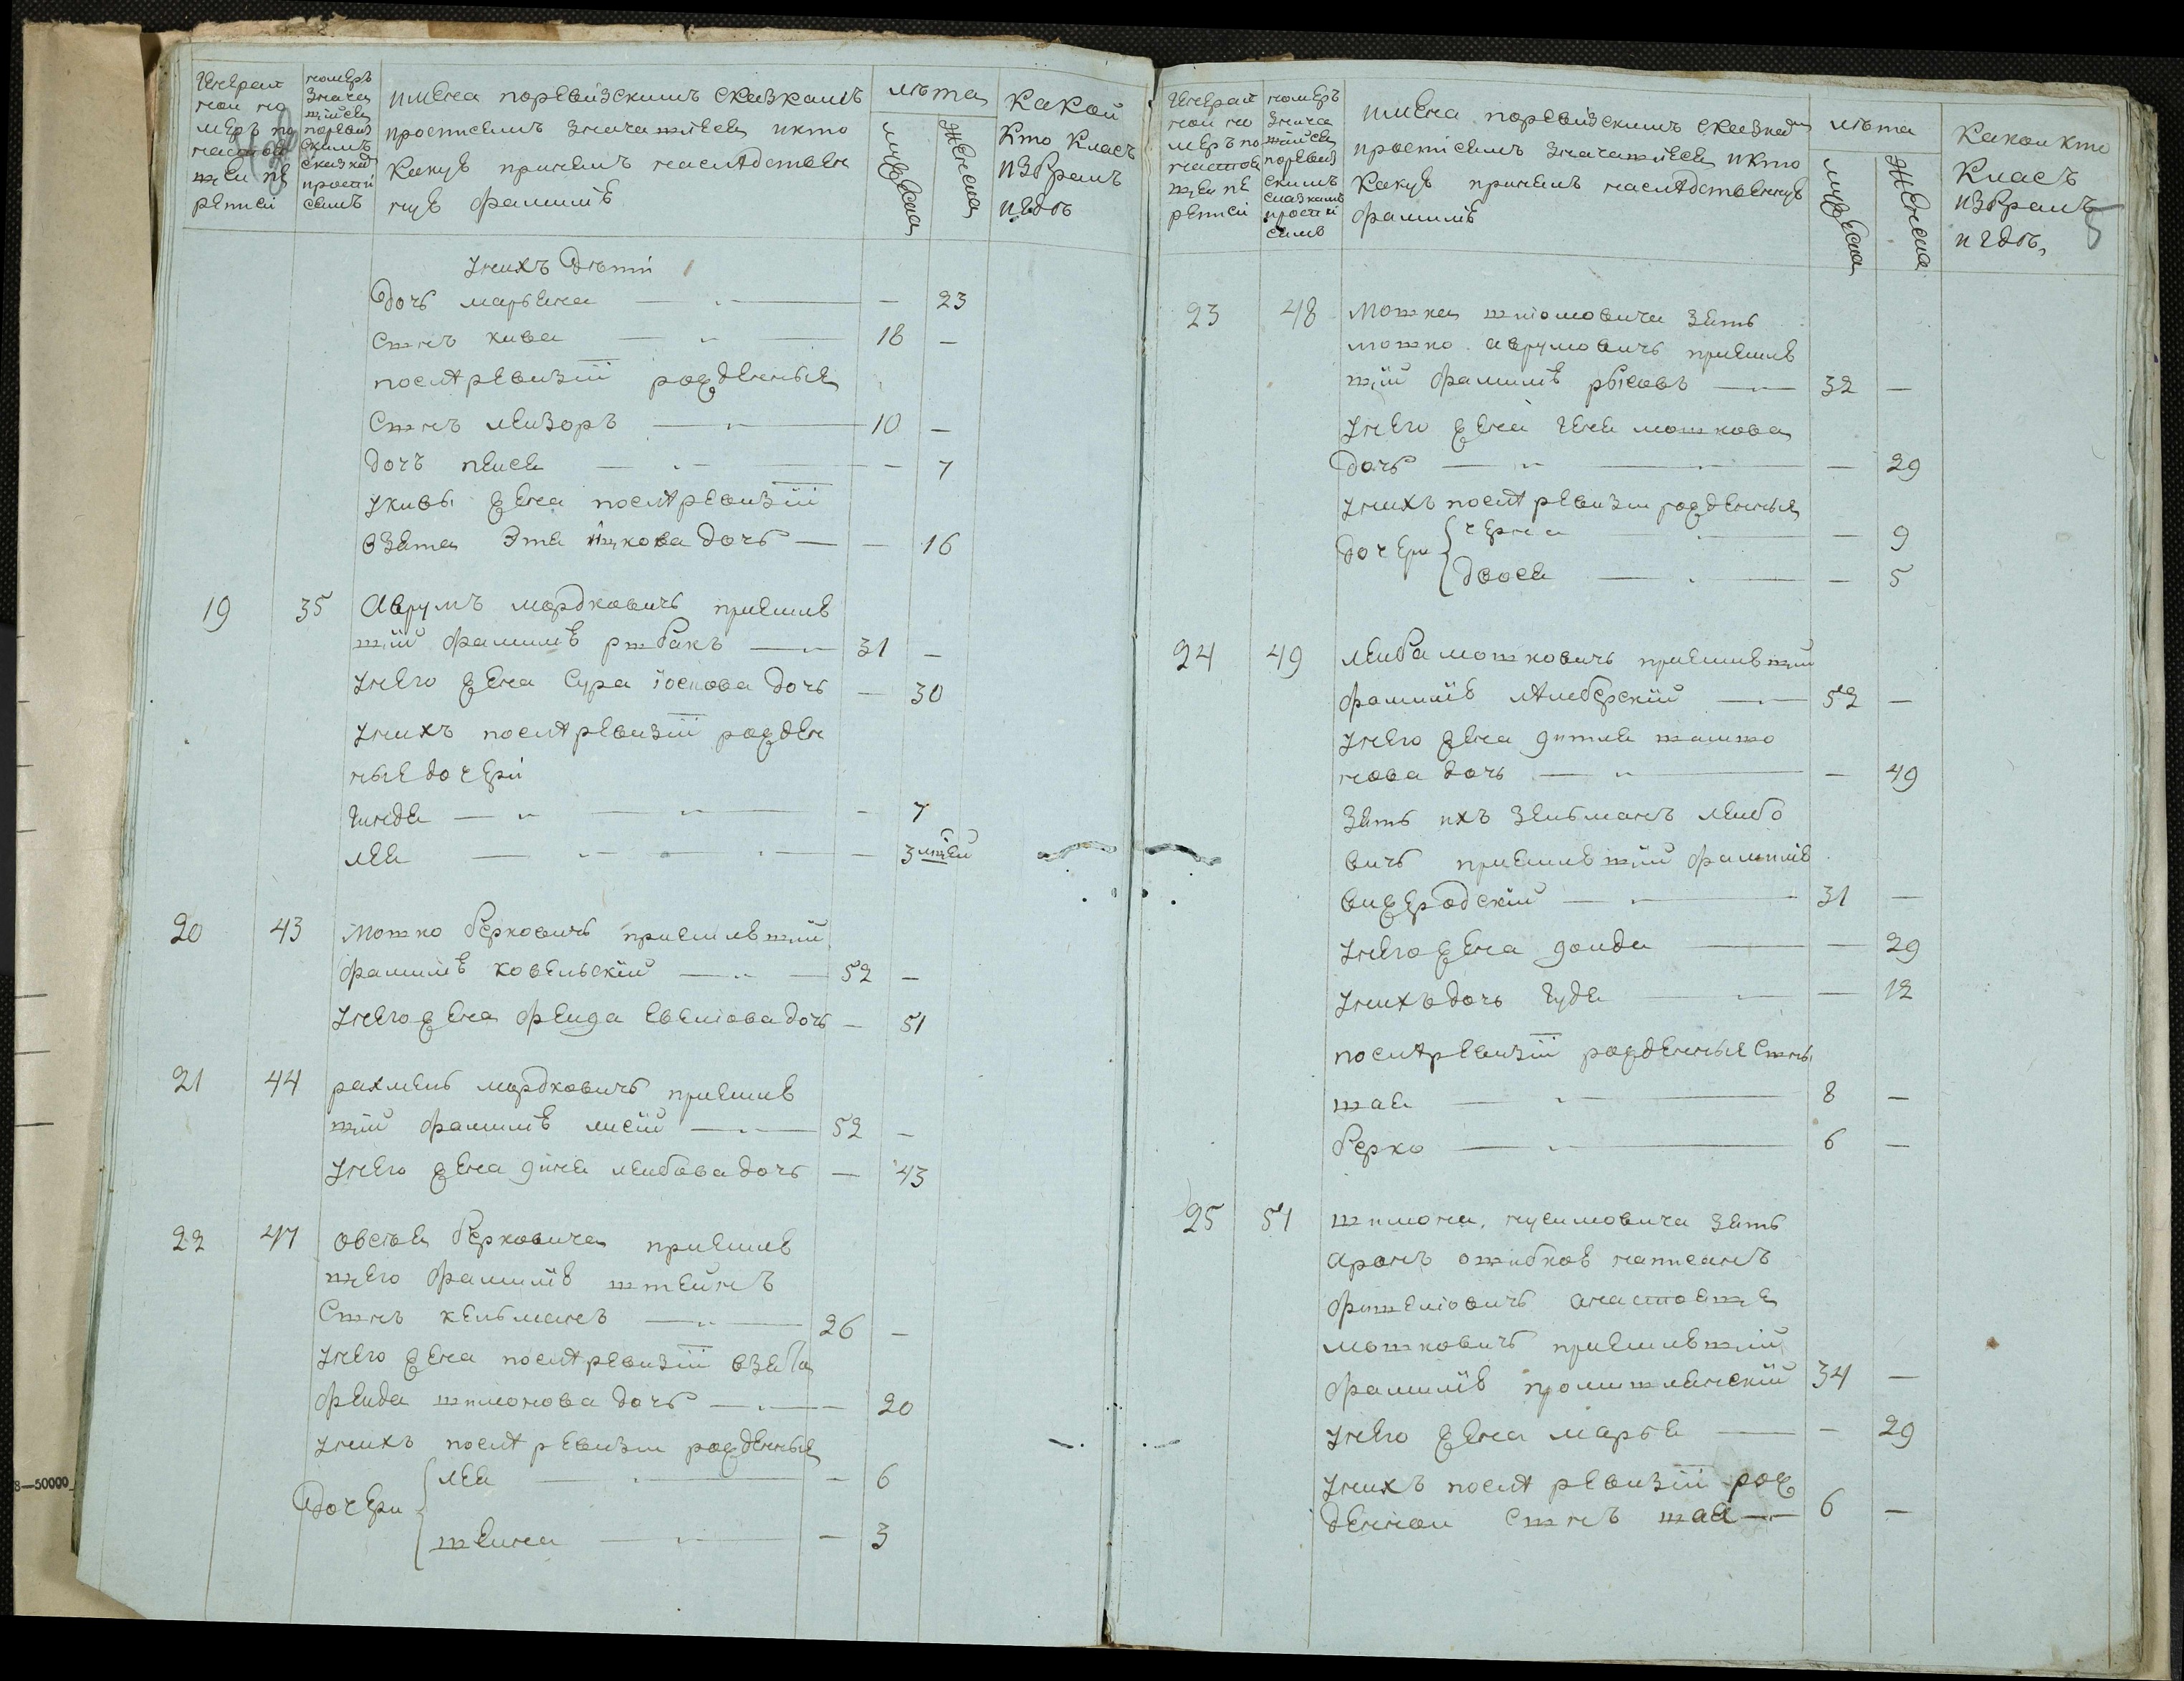 Генерал
ной но
меръ по
настоя
щеи пе
реписи
номеръ
знача
щийся
поревиз
скимъ
сказкам
прости
семъ
имена поревизскимъ сказкамъ
простисемъ значащиеся икто
какую принелъ наслѣдствен
ную фамилию
лѣта
мужеска
женска
какой
кто класъ
избралъ
и гдѣ
унихъ дѣти
дочь марьена — „ — — 23
сынъ кива — „ — 18 —
послѣ ревизіи рожденные
сынъ лейзоръ — „ — 10 —
дочь пейся — „ — — 7
укивы жена послѣ ревизіи
взята Этя ицкова дочь — — 16
19 35 Аврумъ мордковичъ принявъ
шій фамилию рыбакъ — „ — 31 —
унего жена Сура іоскова дочь — 30
унихъ послѣ ревизіи рожден
ные дочери
гинде — „ — „ — — 7
лея — „ — . — — 3
20 43 мошко берковичъ принявшій
фамилию ковельскій — „ — 52 —
унего жена фейга евелiова дочь — 51
21 44 рахмель мордковичъ принявъ
шій фамилию лисій — „ — 52 —
унего жена дине лейбова дочь — 43
22 47 овсея берковича принявъ
шего фамилию штейнъ
сынъ кельманъ — „ — 26 —
унего жена послѣ ревизіи взята
фейда шлiомова дочь — „ — 20
унихъ послѣ ревизіи рожденные
дочери { лея — . — — 6
шейна — „ — — 3
Генерал
ной но
меръ по
настоя
щеи пе
реписи
номеръ
значa
щийся
поревиз
скимъ
сказкамъ
прости
семъ
имена поревизскимъ сказкамъ
простисемъ значащиеся икто
какую принелъ наслѣдственную
фамилию
лѣта
мужеска
женска
какои кто
класъ
избралъ
и гдѣ,
5
23 48 мошка шлiомовича зять
мошко аврумовичъ принявъ
шій фамилию рысовъ — „ — 32 —
унего жена геня мошкова
дочь — „ — „ — — 29
унихъ послѣ ревизіи рожденные
дочери { черна — „ — — 9
двося — . — — 5
24 49 лейба мошковичъ принявшій
фамилию лямберскій — „ — 52 —
унего жена гитля шлiомо
нова дочь — „ — — 49
зять ихъ зельманъ лейбо
вичъ принявшій фамилию
вижгродскій — „ — 31 —
унего жена голда — — 29
унихъ дочь гудя — „ — — 12
послѣ ревизіи рожденные сыны
шая — „ — 8 —
берко — „ — 6 —
25 51 шлiома нухимовича зять
аронъ ошибкою написанъ
фишелiовичъ анастояще
мошковичъ принявшій
фамилию промишлянскій 34 —
унего жена марья — — 29
унихъ послѣ ревизіи рож
деннои сынъ шая — „ — 6 —